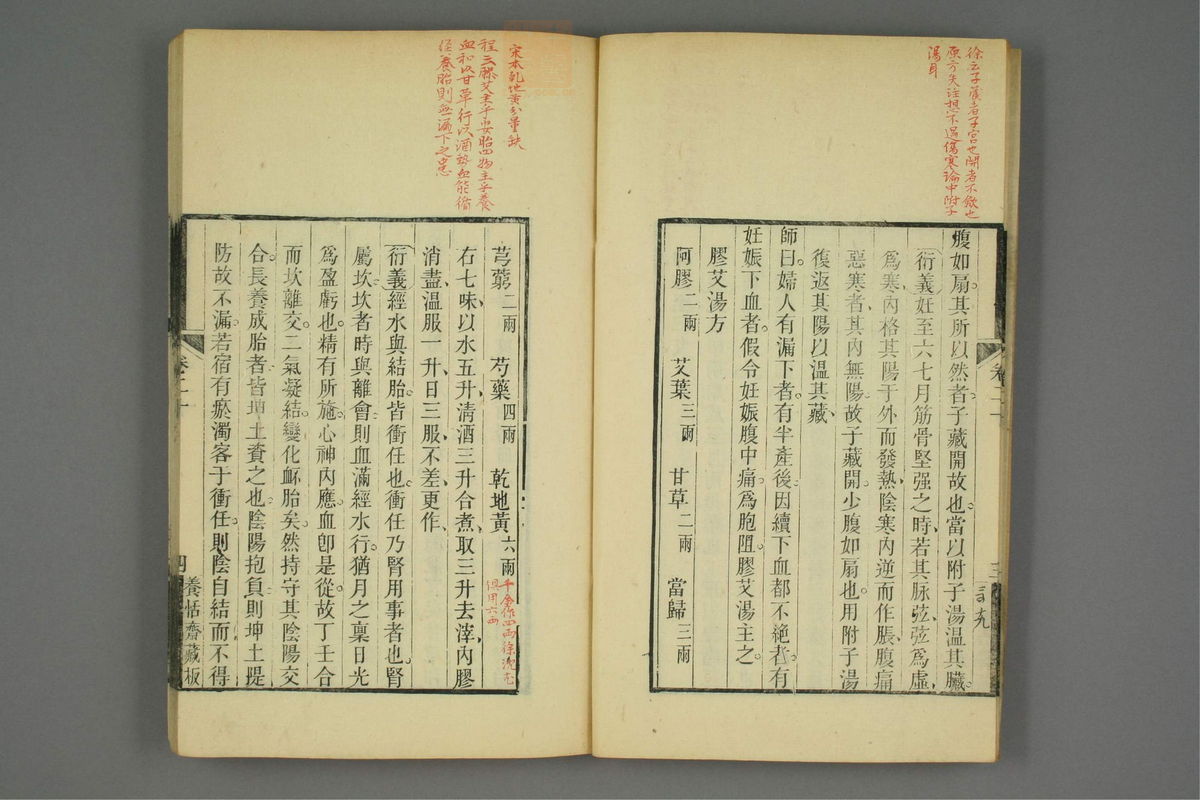 徐云子藏者子宮也開者不斂也
原方失注想不過傷寒論中附子
湯耳
腹如扇。其所以然者。子藏開故也。當以附子湯溫其臟。
衍義妊至六七月筋骨堅强之時、若其脉弦、弦為虛、
為寒、內格其陽于外而發熱、陰寒內逆而作脹、腹痛
惡寒者、其內無陽、故子藏開、少腹如扇也、用附子湯
復返其陽以溫其藏、
師曰。婦人有漏下者。有半產後。因續下血都不絕者。有
妊娠下血者。假令妊娠腹中痛。為胞阻。膠艾湯主之。
膠艾湯方
阿膠二兩 艾葉三兩 甘草二兩 當歸三兩
卷二十
三
宋本乾地黃分量缺
程云膠艾主乎安胎四物主乎養
血和以甘草行以酒勢血能循
經養胎則無漏下之患
芎藭二兩 芍藥四兩 乾地黃六兩
千金作四兩徐沈尤
俱用六兩
右七味、以水五升、淸酒三升合煮、取三升去滓、內膠
消盡、溫服一升、日三服、不差、更作、
衍義經水與結胎。皆衝任也。衝任乃腎用事者也。腎
屬坎。坎者時與離會。則血滿經水行。猶月之稟日光
為盈虧也。精有所施。心神內應。血卽是從。故丁壬合
而坎離交。二氣凝結。變化衃胎矣。然持守其陰陽交
合。長養成胎者。皆坤土資之也。陰陽抱負。則坤土隄
防。故不漏。若宿有瘀濁客于衝任。則陰自結而不得
卷二十
四
養恬齋藏板